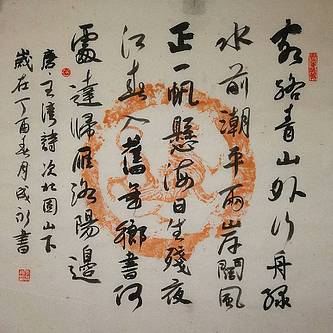 客路青山外行舟緑
水前潮平兩岸闊風
正一帆懸海日生殘夜
江春入舊年鄉書何
處達歸雁洛陽邊
唐王灣詩次北固山下
歲在丁酉春月書